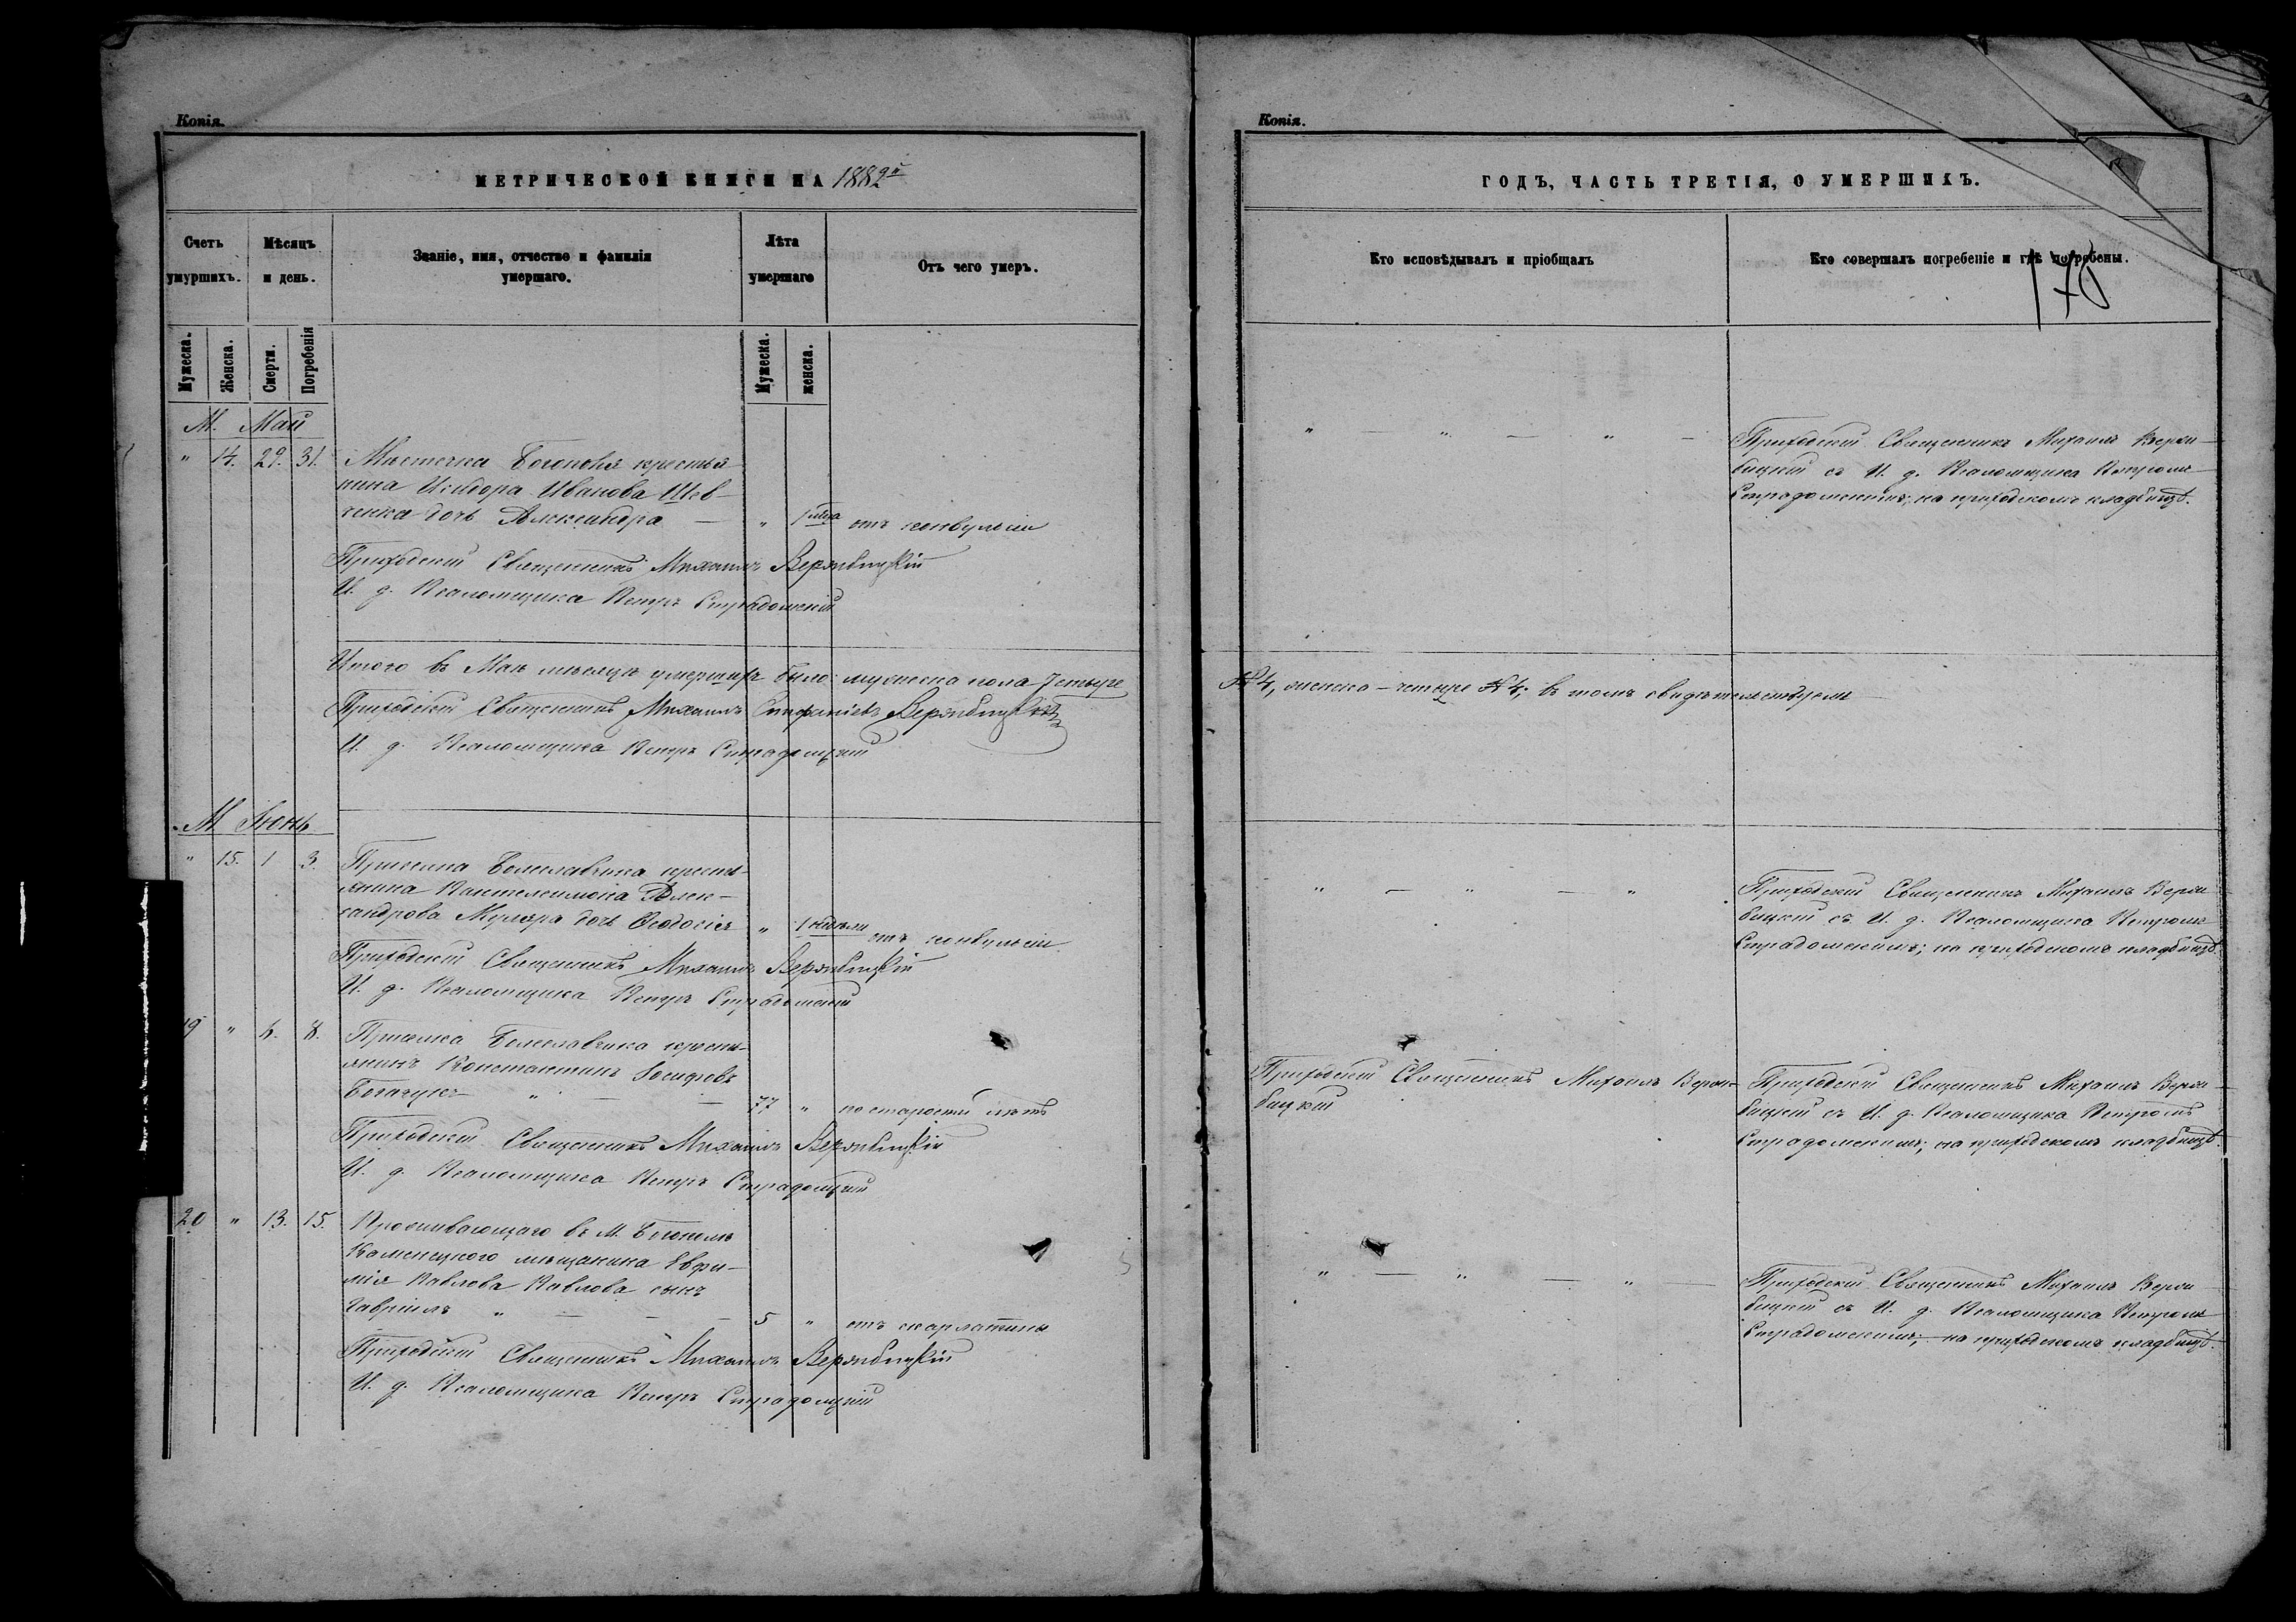 Копія.
МЕТРИЧЕСКОЙ КНИГИ НА 1882й
Счетъ умуршихъ.
Мѣсяцъ и день.
Званіе, имя, отчество и фамилія умершаго.
Лѣта умершаго
Отъ чего умеръ.
Мужеска.
Женска.
Смерти.
Погребенія
Мужеска.
женска.
М. Май
" 14. 29. 31. Мѣстечка Богополя крестья-
нина Исидора Иванова Шев-
ченка дочь Александра — " 1 отъ конвульсіи
Приходскій Священникъ Михаилъ Вержбицкій
И. д. Псаломщика Петръ Страдомскій
Итого въ Маѣ мѣсяцѣ умершихъ было: мужеска пола четыре
Приходскій Священникъ Михаилъ Стефаніевъ Вержбицкій
И. д. Псаломщика Петръ Страдомскій
М Іюнь
" 15. 1 3. Приселка Болеславчика кресть-
янина Пантелеимона Алек-
сандрова Муляра дочь Ѳеодосія " 1 недѣли отъ конвульсіи
Приходскій Священникъ Михаилъ Вержбицкій
И. д. Псаломщика Петръ Страдомскій
19 " 6. 8. Приселка Болеславчика кресть-
янинъ Константинъ Іосифовъ
" — — 77 " по старости лѣтъ
Приходскій Священникъ Михаилъ Вержбицкій
И. д. Псаломщика Петръ Страдомскій
20 " 13. 15. Проживающаго въ М. Богополѣ
Каменецкого мѣщанина Евфи-
мія Павлова Павлова сынъ
Гавріилъ " — — — 5 " отъ скарлатины
Приходскій Священникъ Михаилъ Вержбицкій
И. д. Псаломщика Петръ Страдомскій
Копія.
ГОДЪ, ЧАСТЬ ТРЕТІЯ, О УМЕРШИХЪ.
Кто исповѣдывалъ и пріобщалъ
Кто совершалъ погребеніе и гдѣ погребены.
170
" — " — " —
Приходскій Священникъ Михаилъ Вержи-
бицкій съ И. д. Псаломщика Петромъ
Страдомскимъ; на приходскомъ кладбищѣ.
№ 4, женска — четыре № 4; въ томъ свидѣтельствуемъ
" — " — "
Приходскій Священникъ Михаилъ Вержи-
бицкій съ И. д. Псаломщика Петромъ
Страдомскимъ; на приходскомъ кладбищѣ.
Приходскій Священникъ Михаилъ Вержи-
бицкій
Приходскій Священникъ Михаилъ Вержи-
бицкій съ И. д. Псаломщика Петромъ
Страдомскимъ; на приходскомъ кладбищѣ.
" — " — " —
Приходскій Священникъ Михаилъ Вержи-
бицкій съ И. д. Псаломщика Петромъ
Страдомскимъ; на приходскомъ кладбищѣ.